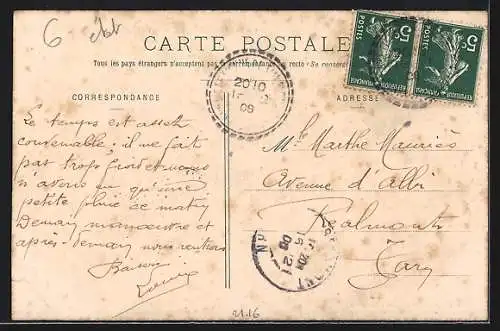 6
CARTE POSTALE
Tous les pays étrangers n'acceptent pas la correspondance au recto « Se renseigner
CORRESPONDANCE
ADRESSE
5c 5c
POSTES POSTES
REPUBLIQUE FRANÇAISE REPUBLIQUE FRANÇAISE
20 10
09
Le temps est assez
convenable, il ne fait
pas trop froid
n'avons eu qu'une
petite pluie ce matin
Demain manœuvre et
après-demain nous rentrons
Baisers
Louis
Mlle Marthe Mauriès
Avenue d'Albi
Réalmont
Tarn
21
09
2116